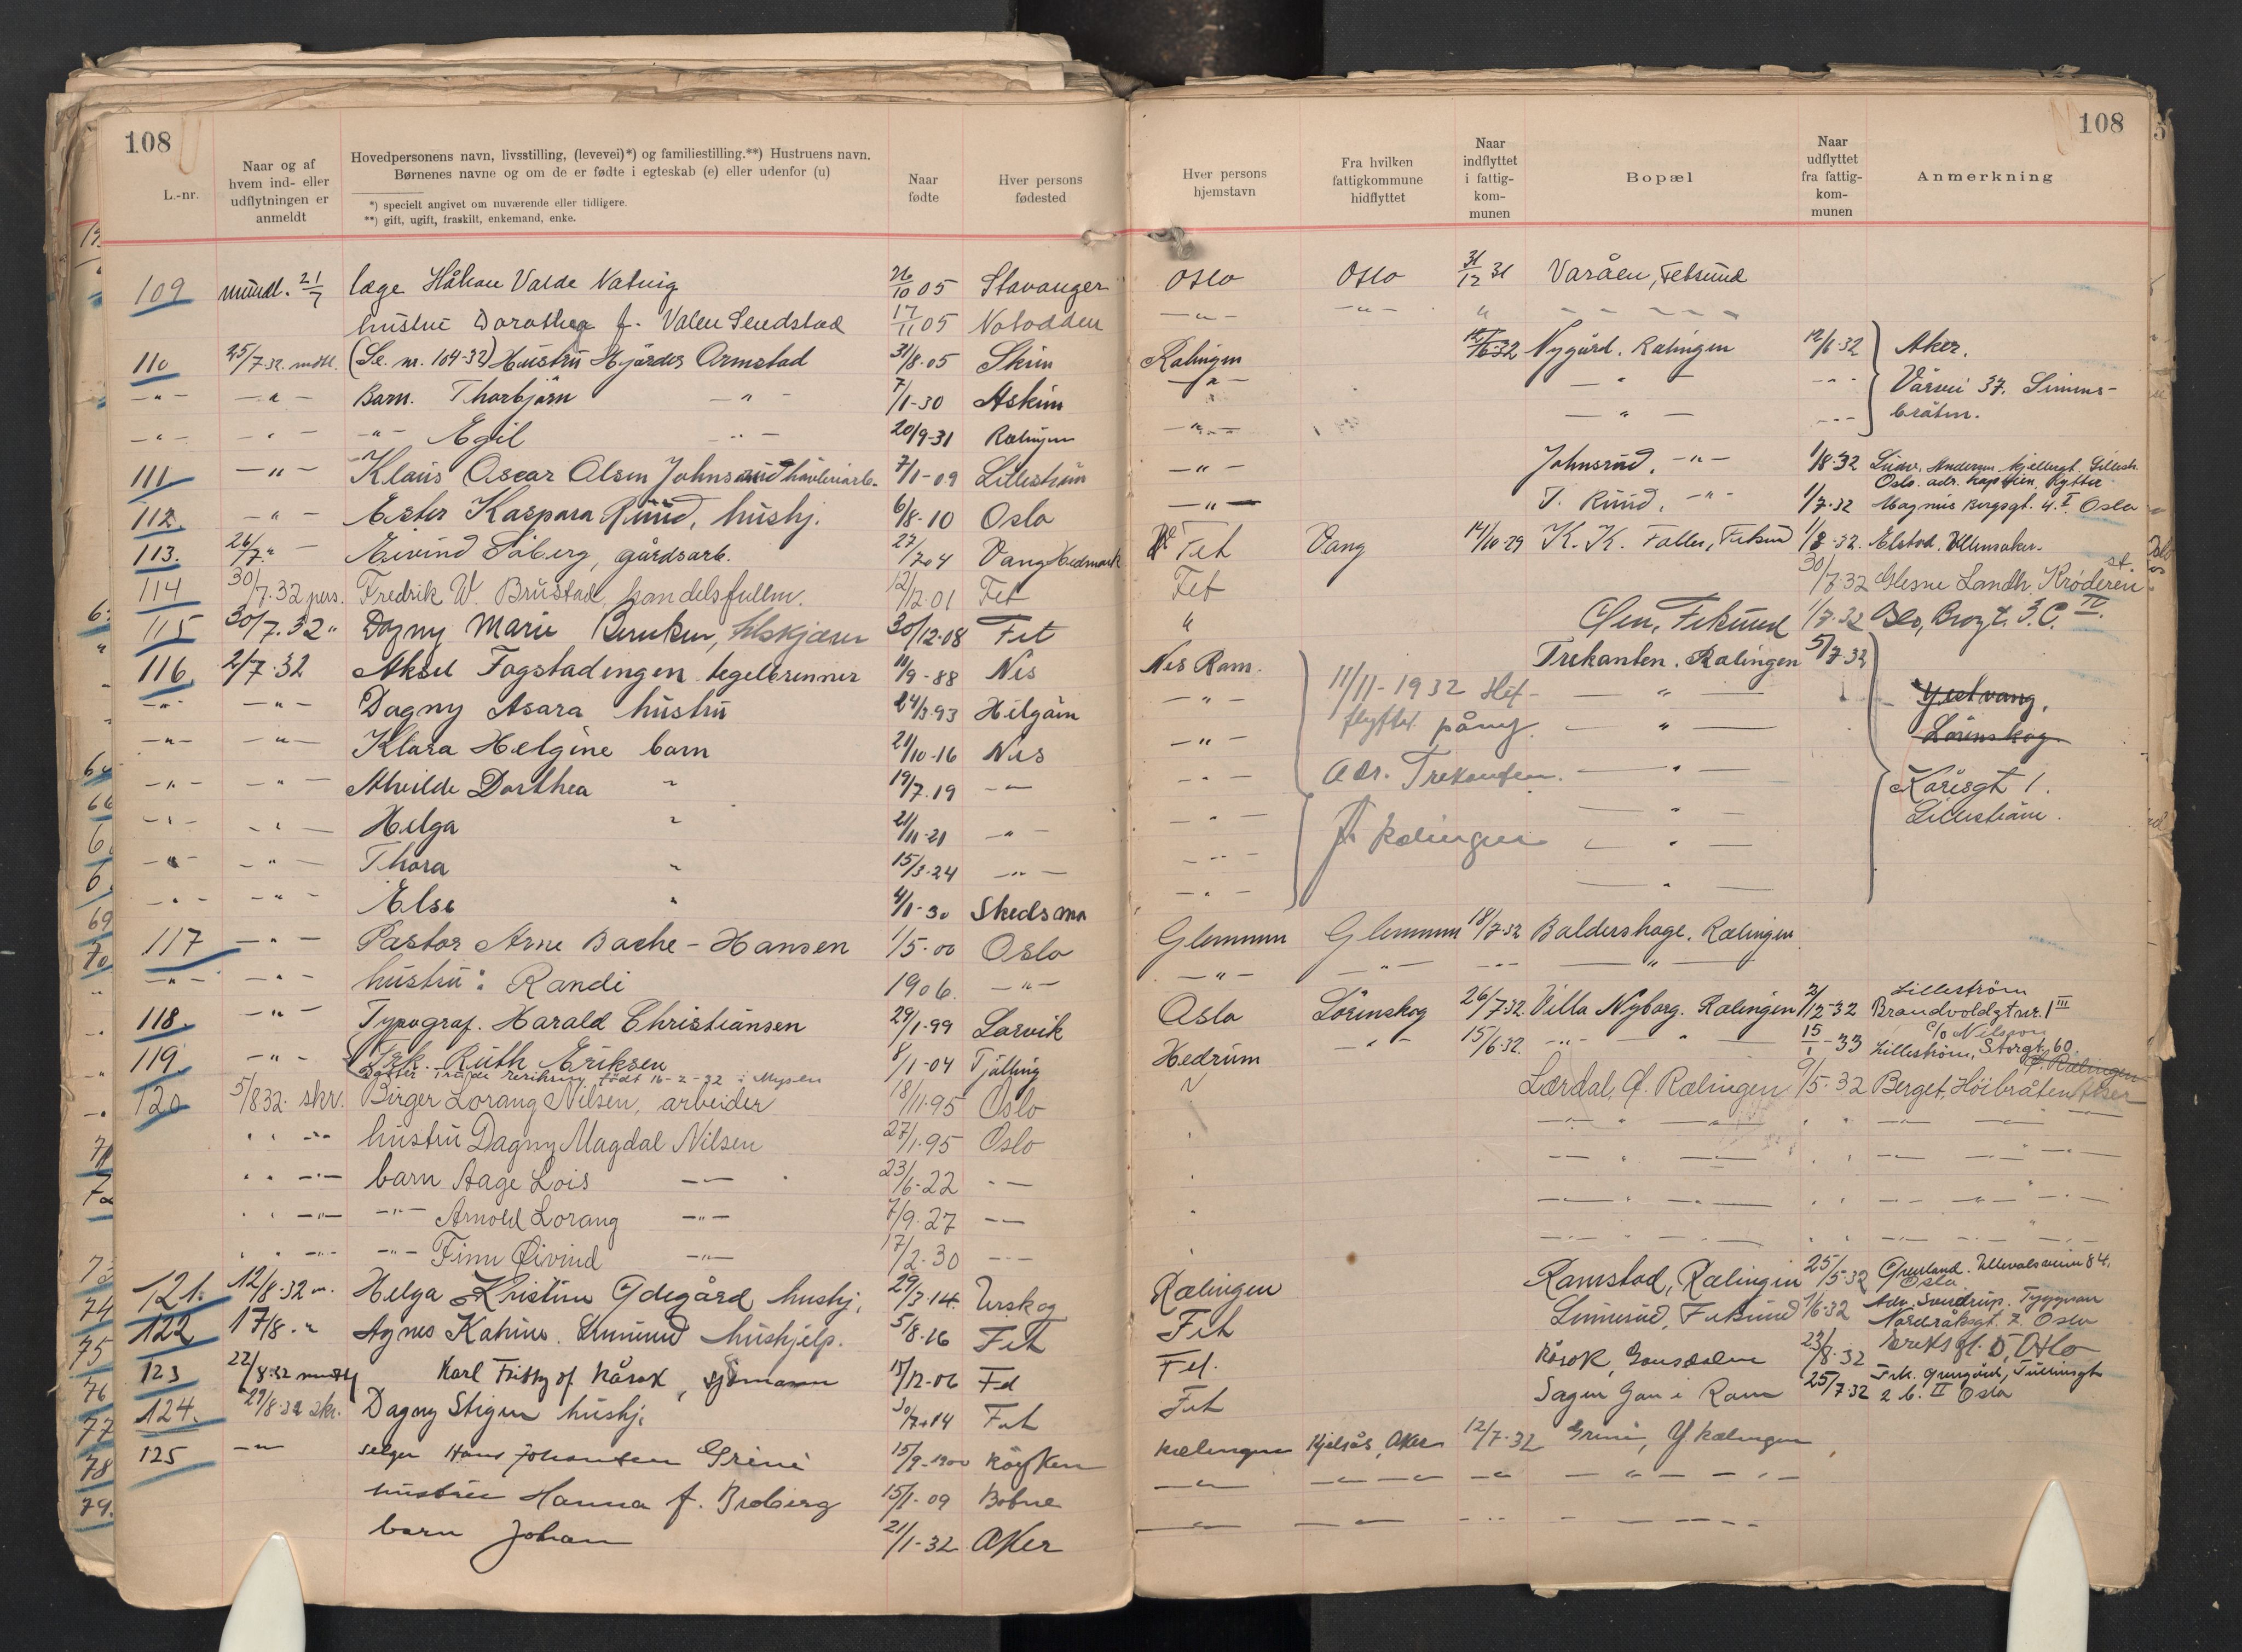 108
108
L.-nr.
Naar og af hvem ind- eller udflytningen er anmeldt
Hovedpersonens navn, livsstilling, (levevei)*) og familiestilling.**) Hustruens navn.
Børnenes navne og om de er fødte i egteskab (e) eller udenfor (u)
*) specielt angivet om nuværende eller tidligere.
**) gift, ugift, fraskilt, enkemand, enke.
Naar fødte
Hver persons fødested
Hver persons hjemstavn
Fra hvilken fattigkommune hidflyttet
Naar indflyttet i fattig-kom-munen
Bopæl
Naar udflyttet fra fattig-kom-munen
Anmerkning
109 mundl. 21/7 læge Håkon Valde Natvig 26/10 05 Stavanger Oslo Oslo 31/12 31 Varåen, Fetsund
hustru Dorothea f. Valen Sendstad 17/11 05 Notodden -"- -"- "
110 25/7-32 mdtl. (Se nr. 104-32) Hustru Hjørdis Ormstad 31/8-05 Skim Rælingen 12/6-32 Nygård. Rælingen 12/6-32 Aker.
-"- -"- Barn. Thorbjørn -"- 7/1-30 Askim -"- -"- -"- Vårvei 37. Simens-
-"- -"- -"- Egil -"- 20/9-31 Rælingen -"- -"- -"- bråten.
111 -"- Klaus Oscar Olsen Johnsrud høvleriarb. 7/1-09 Lillestrøm -"- Johnsrud. -"- 1/8-32
112. -"- Ester Kaspara Ruud, hushj. 6/8-10 Oslo -"- T. Ruud. -"- 1/7-32 Magnus Bergsgt. 4. I Oslo
113. 26/7 " Eivind Soberg, gårdsarb. 27/7 04 Vang Hedmark Fet Vang 14/10-29 K. K. Faller, Fetsund 1/8-32. Elstad. Ullensaker.
114 30/7.32 pers. Fredrik W. Brustad, handelsfullm. 12/12 01 Fet Fet 30/7.32 Glesne Landh. Krøderen st.
115 30/7.32 " Dagny Marie Berntsen, 30/12-08 Fet " Fetsund 1/7-32 Oslo,
116 2/7-32 Aksel Fagstadengen teglbrenner 11/9-88 Nes Nes Rom. Trekanten. Rælingen 5/7-32
-"- -"- Dagny Asara hustru 24/3-93 -"- 11/11-1932 -"- Gjetvang,
-"- -"- Klara Helgine barn 21/10-16 Nes -"- flyttet påny. -"- Lørenskog.
-"- -"- Alvilde Dorthea " 19/7.19 -"- -"- Adr. Trekanten. -"- Kårisgt 1.
-"- -"- Helga " 21/11-21 -"- -"- -"- Lillestrøm.
-"- -"- Thora " 15/3-24 -"- -"- Rælingen -"-
-"- -"- Else " 4/1-30 Skedsmo -"- -"-
117 -"- Pastor Arne Bache-Hansen 1/5-00 Oslo Glemmen Glemmen 18/7-32 Baldershage. Rælingen
-"- -"- hustru: Randi 1906. -"- -"- -"- -"- -"-
118. -"- Typograf. Harald Christiansen 29/1-99 Larvik Oslo Lørenskog 26/7-32. Villa Nyborg. Rælingen 2/12-32 Lillestrøm Brandvoldgt nr. 1 III
119. -"- Frk. Ruth Eriksen 8/1-04 Tjølling Hedrum -"- 15/6-32. -"- -"- 15/1-33 c/o Nilsson Lillestrøm, Storgt. 60.
født 16-2-32 i Mysen
120 5/8 32. skr. Birger Lorang Nilsen, arbeider 18/11-95 Oslo Lærdal, Rælingen 9/5-32 Berget, Høibråten Aker
" " -"- hustru Dagny Magdal Nilsen 27/1-95 Oslo
" " -"- barn Aage Lois -"- 23/6-22 -"-
" " -"- -"- Arnold Lorang -"- 7/9-27 -"-
" " -"- -"- Finn Øivind -"- 17/2-30 -"-
121. 12/8-32 m. Helga Kristine Ødegård hushj. 29/3-14. Urskog Rælingen Ramstad, Rælingen 25/5-32 Ullevalsveien 84. Oslo
122 17/8. " Agnes Katrine hushjelp. 5/8-16 Fet Fet Fetsund 1/6-32 Adv. Svendrup. Nordråksgt. 7. Oslo
123 22/8-32 mundtl Karl Fritjof Kårok, sjømann 15/12-06 Fet Fet. Gansdalen 23/8-32 Oslo
124. 29/8-32 skr. Dagny Stigen hushj. 30/7-14 Fet Fet Sagen Gan i Ram 25/7-32 2 b. II Oslo
125 -"- selger Hans Johansen Grini 15/9-1900 Røyken Rælingen Kjelsås, Aker 12/7-32 Grini, Y. Rælingen
hustru Hanna f. Broberg 15/1-09 -"- -"- -"- -"-
barn Johan 21/1-32 Aker -"- -"- -"- -"-